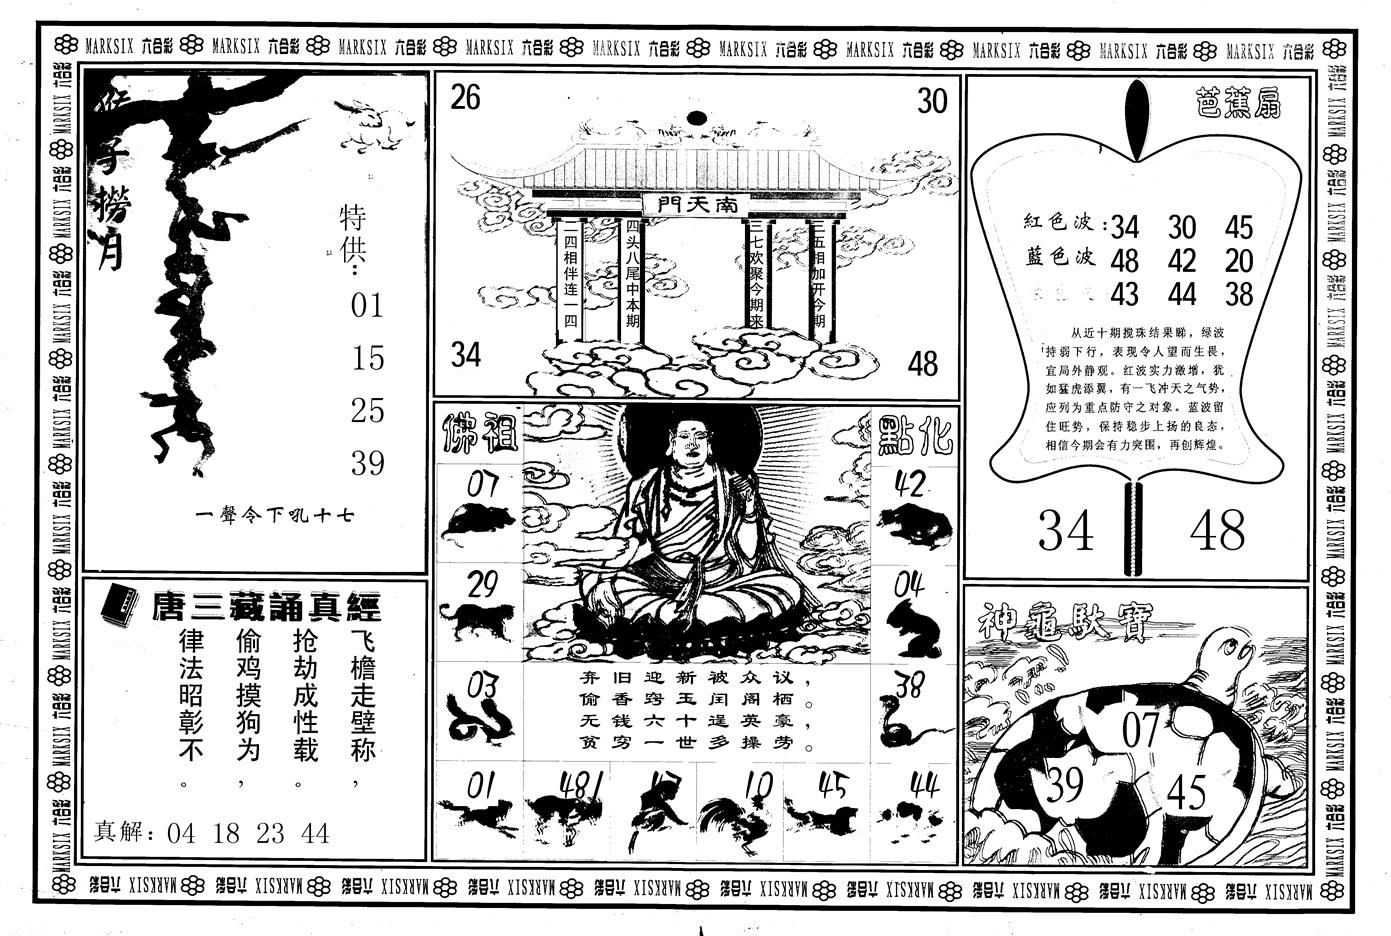 MARKSIX 六合彩 MARKSIX 六合彩 MARKSIX 六合彩 MARKSIX 六合彩 MARKSIX 六合彩 MARKSIX 六合彩 MARKSIX 六合彩 MARKSIX 六合彩 MARKSIX 六合彩 MARKSIX 六合彩
猴子撈月
特供：
01
15
25
39
一聲令下吼十七
唐三藏誦真經
飞檐走壁称，
抢劫成性载。
偷鸡摸狗为，
律法昭彰不。
真解：04 18 23 44
26
30
門天南
二四相伴连一四
四头八尾中本期
三七欢聚今期来
三五相加开今期
34
48
佛祖
點化
07
42
29
04
03
38
弃旧迎新被众议，
偷香窃玉闰阁栖。
无钱六十逞英豪，
贫穷一世多操劳。
01
481
10
45
44
芭蕉扇
紅色波：34 30 45
藍色波 48 42 20
43 44 38
从近十期搅珠结果睇，绿波
持弱下行，表现令人望而生畏，
宜局外静观。红波实力激增，犹
如猛虎添翼，有一飞冲天之气势，
应列为重点防守之对象。蓝波留
住旺势，保持稳步上扬的良态，
相信今期会有力突围，再创辉煌。
34
48
神龜馱寶
07
39
45